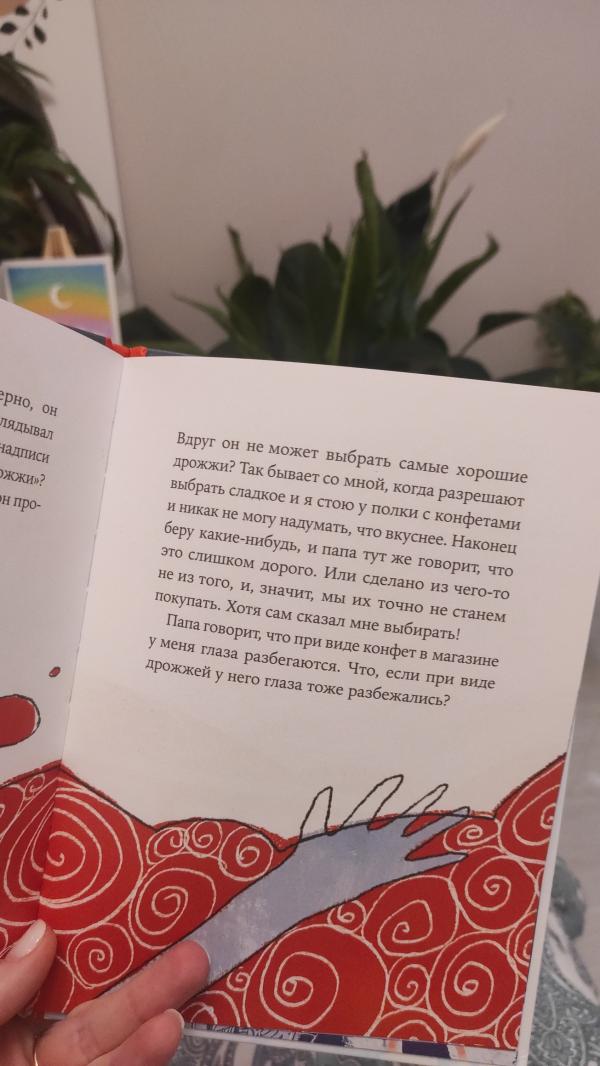 ерно, он
глядывал
надписи
ожжи»?
он про-
Вдруг он не может выбрать самые хорошие
дрожжи? Так бывает со мной, когда разрешают
выбрать сладкое и я стою у полки с конфетами
и никак не могу надумать, что вкуснее. Наконец
беру какие-нибудь, и папа тут же говорит, что
это слишком дорого. Или сделано из чего-то
не из того, и, значит, мы их точно не станем
покупать. Хотя сам сказал мне выбирать!
Папа говорит, что при виде конфет в магазине
у меня глаза разбегаются. Что, если при виде
дрожжей у него глаза тоже разбежались?